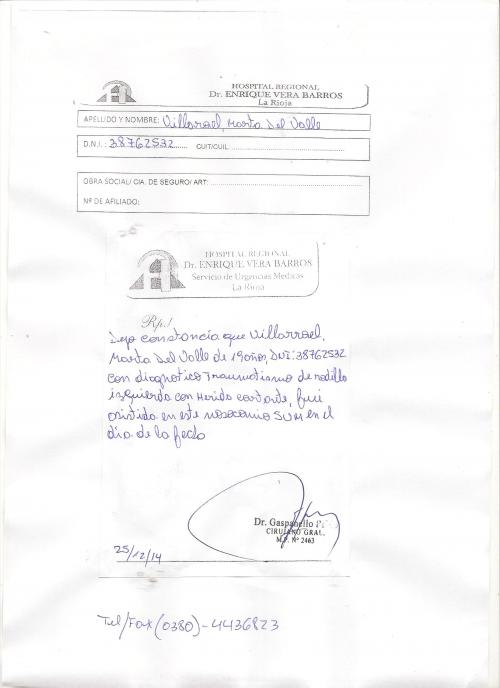 HOSPITAL REGIONAL
Dr. ENRIQUE VERA BARROS
La Rioja
APELLIDO Y NOMBRE: Villarrael, Marta Del Valle
D.N.I.: 38762532 CUIT/CUIL:
OBRA SOCIAL/ CIA. DE SEGURO/ ART:
Nº DE AFILIADO:
HOSPITAL REGIONAL
Dr. ENRIQUE VERA BARROS
Servicio de Urgencias Medicas
La Rioja
Rp./
Dejo constancia que Villarrael,
Marta Del Valle de 19 años, DNI: 38762532
con diagnotico Traumatismo de rodilla
izquierda con Herida cortante, fue
asistida en este nosocomio SUM en el
dia de la fecha
Dr. Gaspanello
CIRUJANO GRAL.
M.P. Nº 2463
25/12/14
Tel/Fax (0380)-4436823